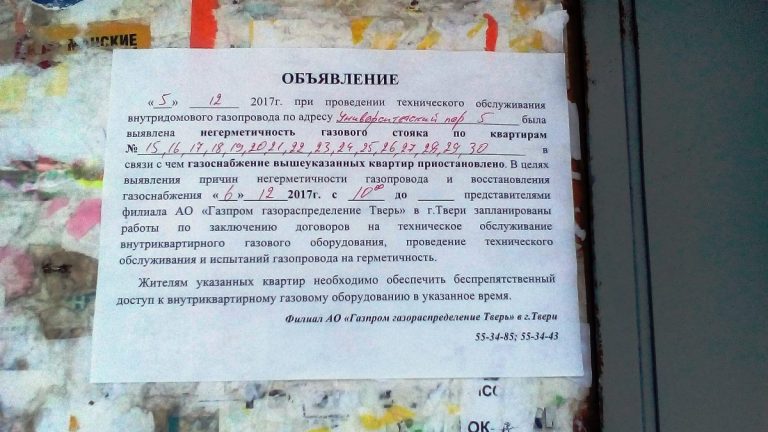 НСКИЕ
ОБЪЯВЛЕНИЕ
«5» 12 2017г. при проведении технического обслуживания
внутридомового газопровода по адресу Университетский пер 5 была
выявлена негерметичность газового стояка по квартирам
№ 15,16,17,18,19,20,21,22,23,24,25,26,27,28,29,30 в
связи с чем газоснабжение вышеуказанных квартир приостановлено. В целях
выявления причин негерметичности газопровода и восстановления
газоснабжения «6» 12 2017г. с 10⁰⁰ до ______ представителями
филиала АО «Газпром газораспределение Тверь» в г.Твери запланированы
работы по заключению договоров на техническое обслуживание
внутриквартирного газового оборудования, проведение технического
обслуживания и испытаний газопровода на герметичность.
Жителям указанных квартир необходимо обеспечить беспрепятственный
доступ к внутриквартирному газовому оборудованию в указанное время.
Филиал АО «Газпром газораспределение Тверь» в г.Твери
55-34-85; 55-34-43
ОК-